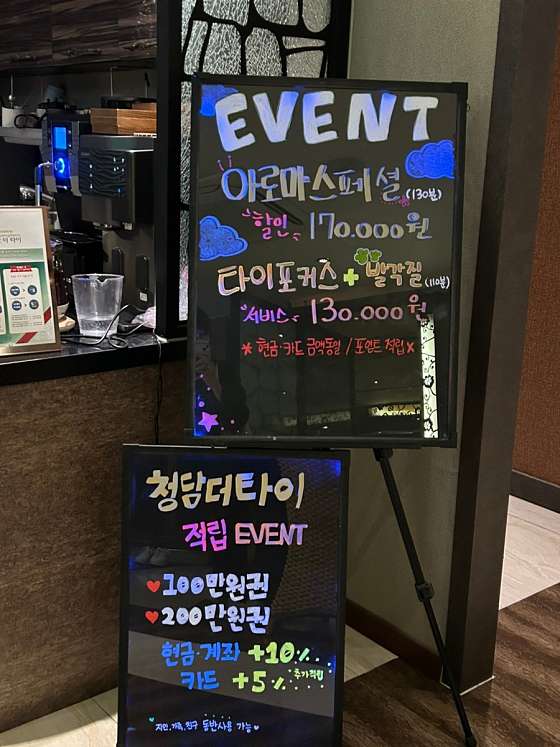 EVENT
아로마스페셜 (130분)
할인 170.000원
타이포커스 + 발각질 (110분)
서비스 130.000원
* 현금·카드 금액동일 / 포인트 적립 *
청담더타이
적립 EVENT
♥100만원권
♥200만원권
현금·계좌 +10%
카드 +5% 추가적립
지인, 가족, 친구 동반사용 가능